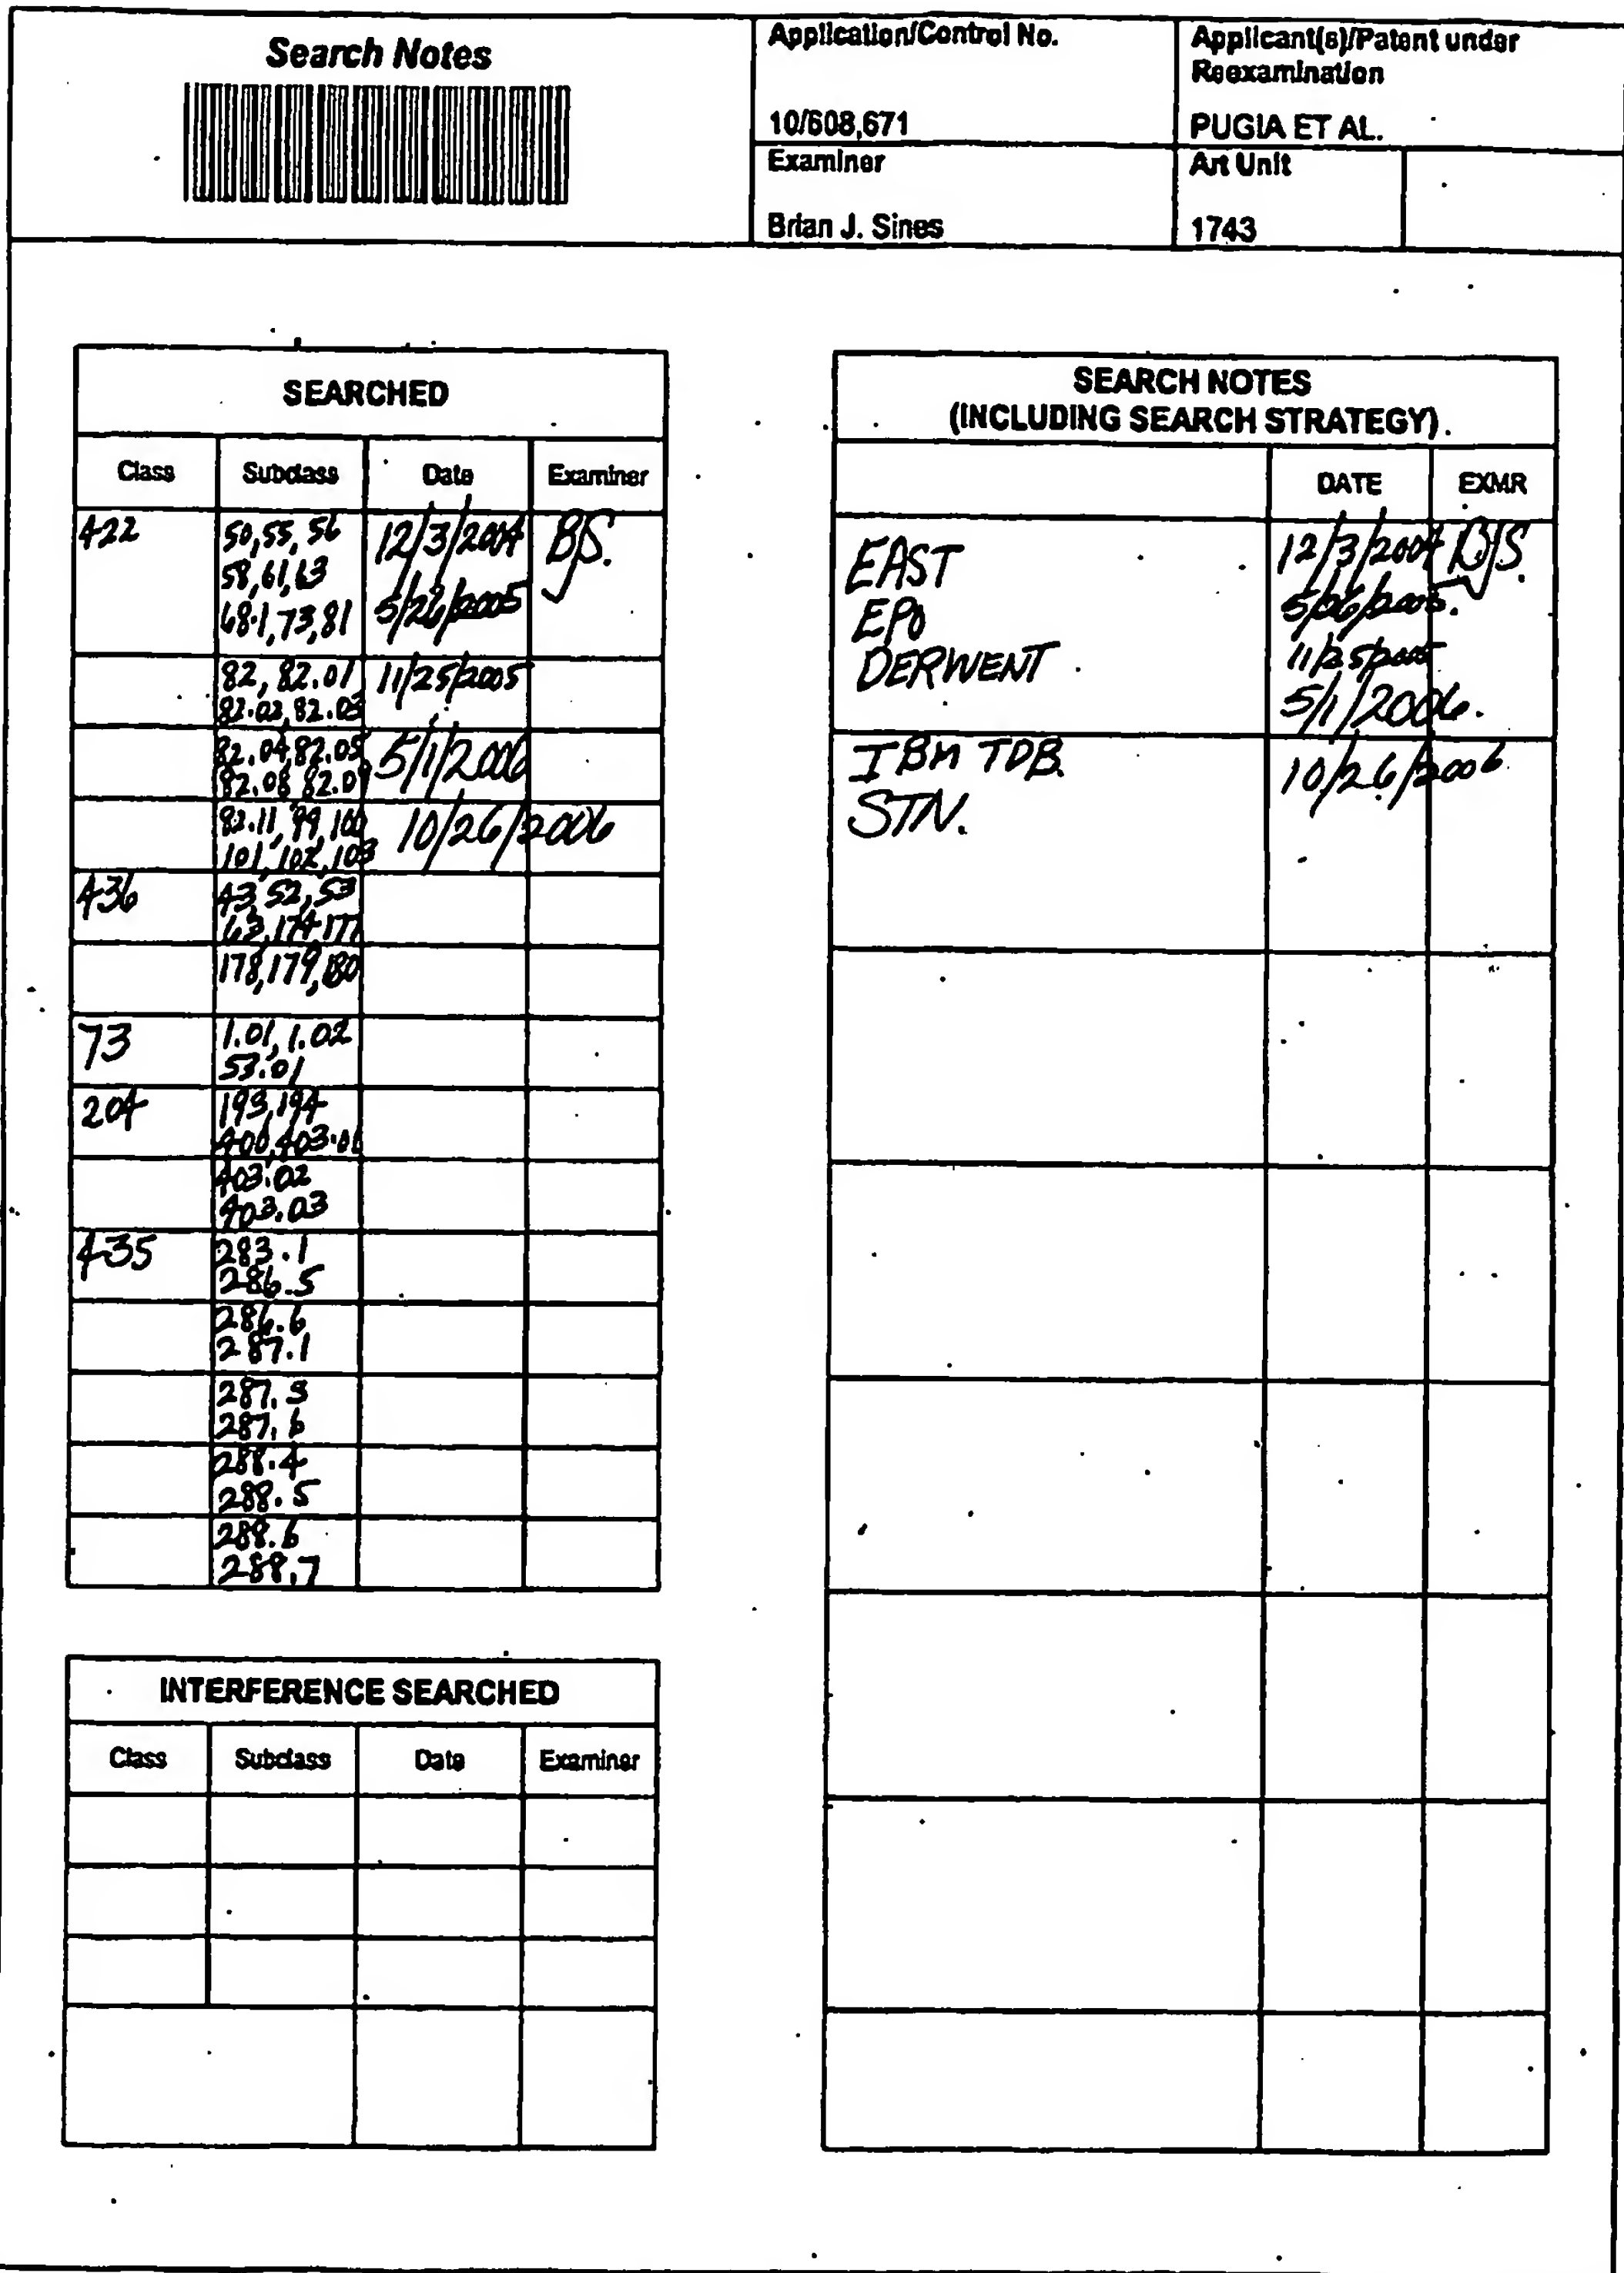 Search Notes
Application/Control No.
10/608,671
Applicant(s)/Patent under
Reexamination
PUGIA ET AL.
Examiner
Brian J. Sines
Art Unit
1743
SEARCHED
Class Subclass Date Examiner
422 50,55,56 12/3/2004 BJS.
58,61,63
68.1,73,81 5/26/2005
82, 82.01 11/25/2005
82.02,82.03
82.04,82.05 5/1/2006
82.08,82.09
82.11,99,100 10/26/2006
101,102,103
436 43,52,53
63,174,177
178,179,180
73 1.01,1.02
53.01
204 193,194
400,403.01
403.02
403.03
435 283.1
286.5
286.6
287.1
287.3
287.6
288.4
288.5
288.6
288.7
INTERFERENCE SEARCHED
Class Subclass Date Examiner
SEARCH NOTES
(INCLUDING SEARCH STRATEGY)
DATE EXMR
EAST 12/3/2004 BJS.
EPO 5/26/2005.
DERWENT 11/25/2005
5/1/2006.
IBM TDB. 10/26/2006
STN.